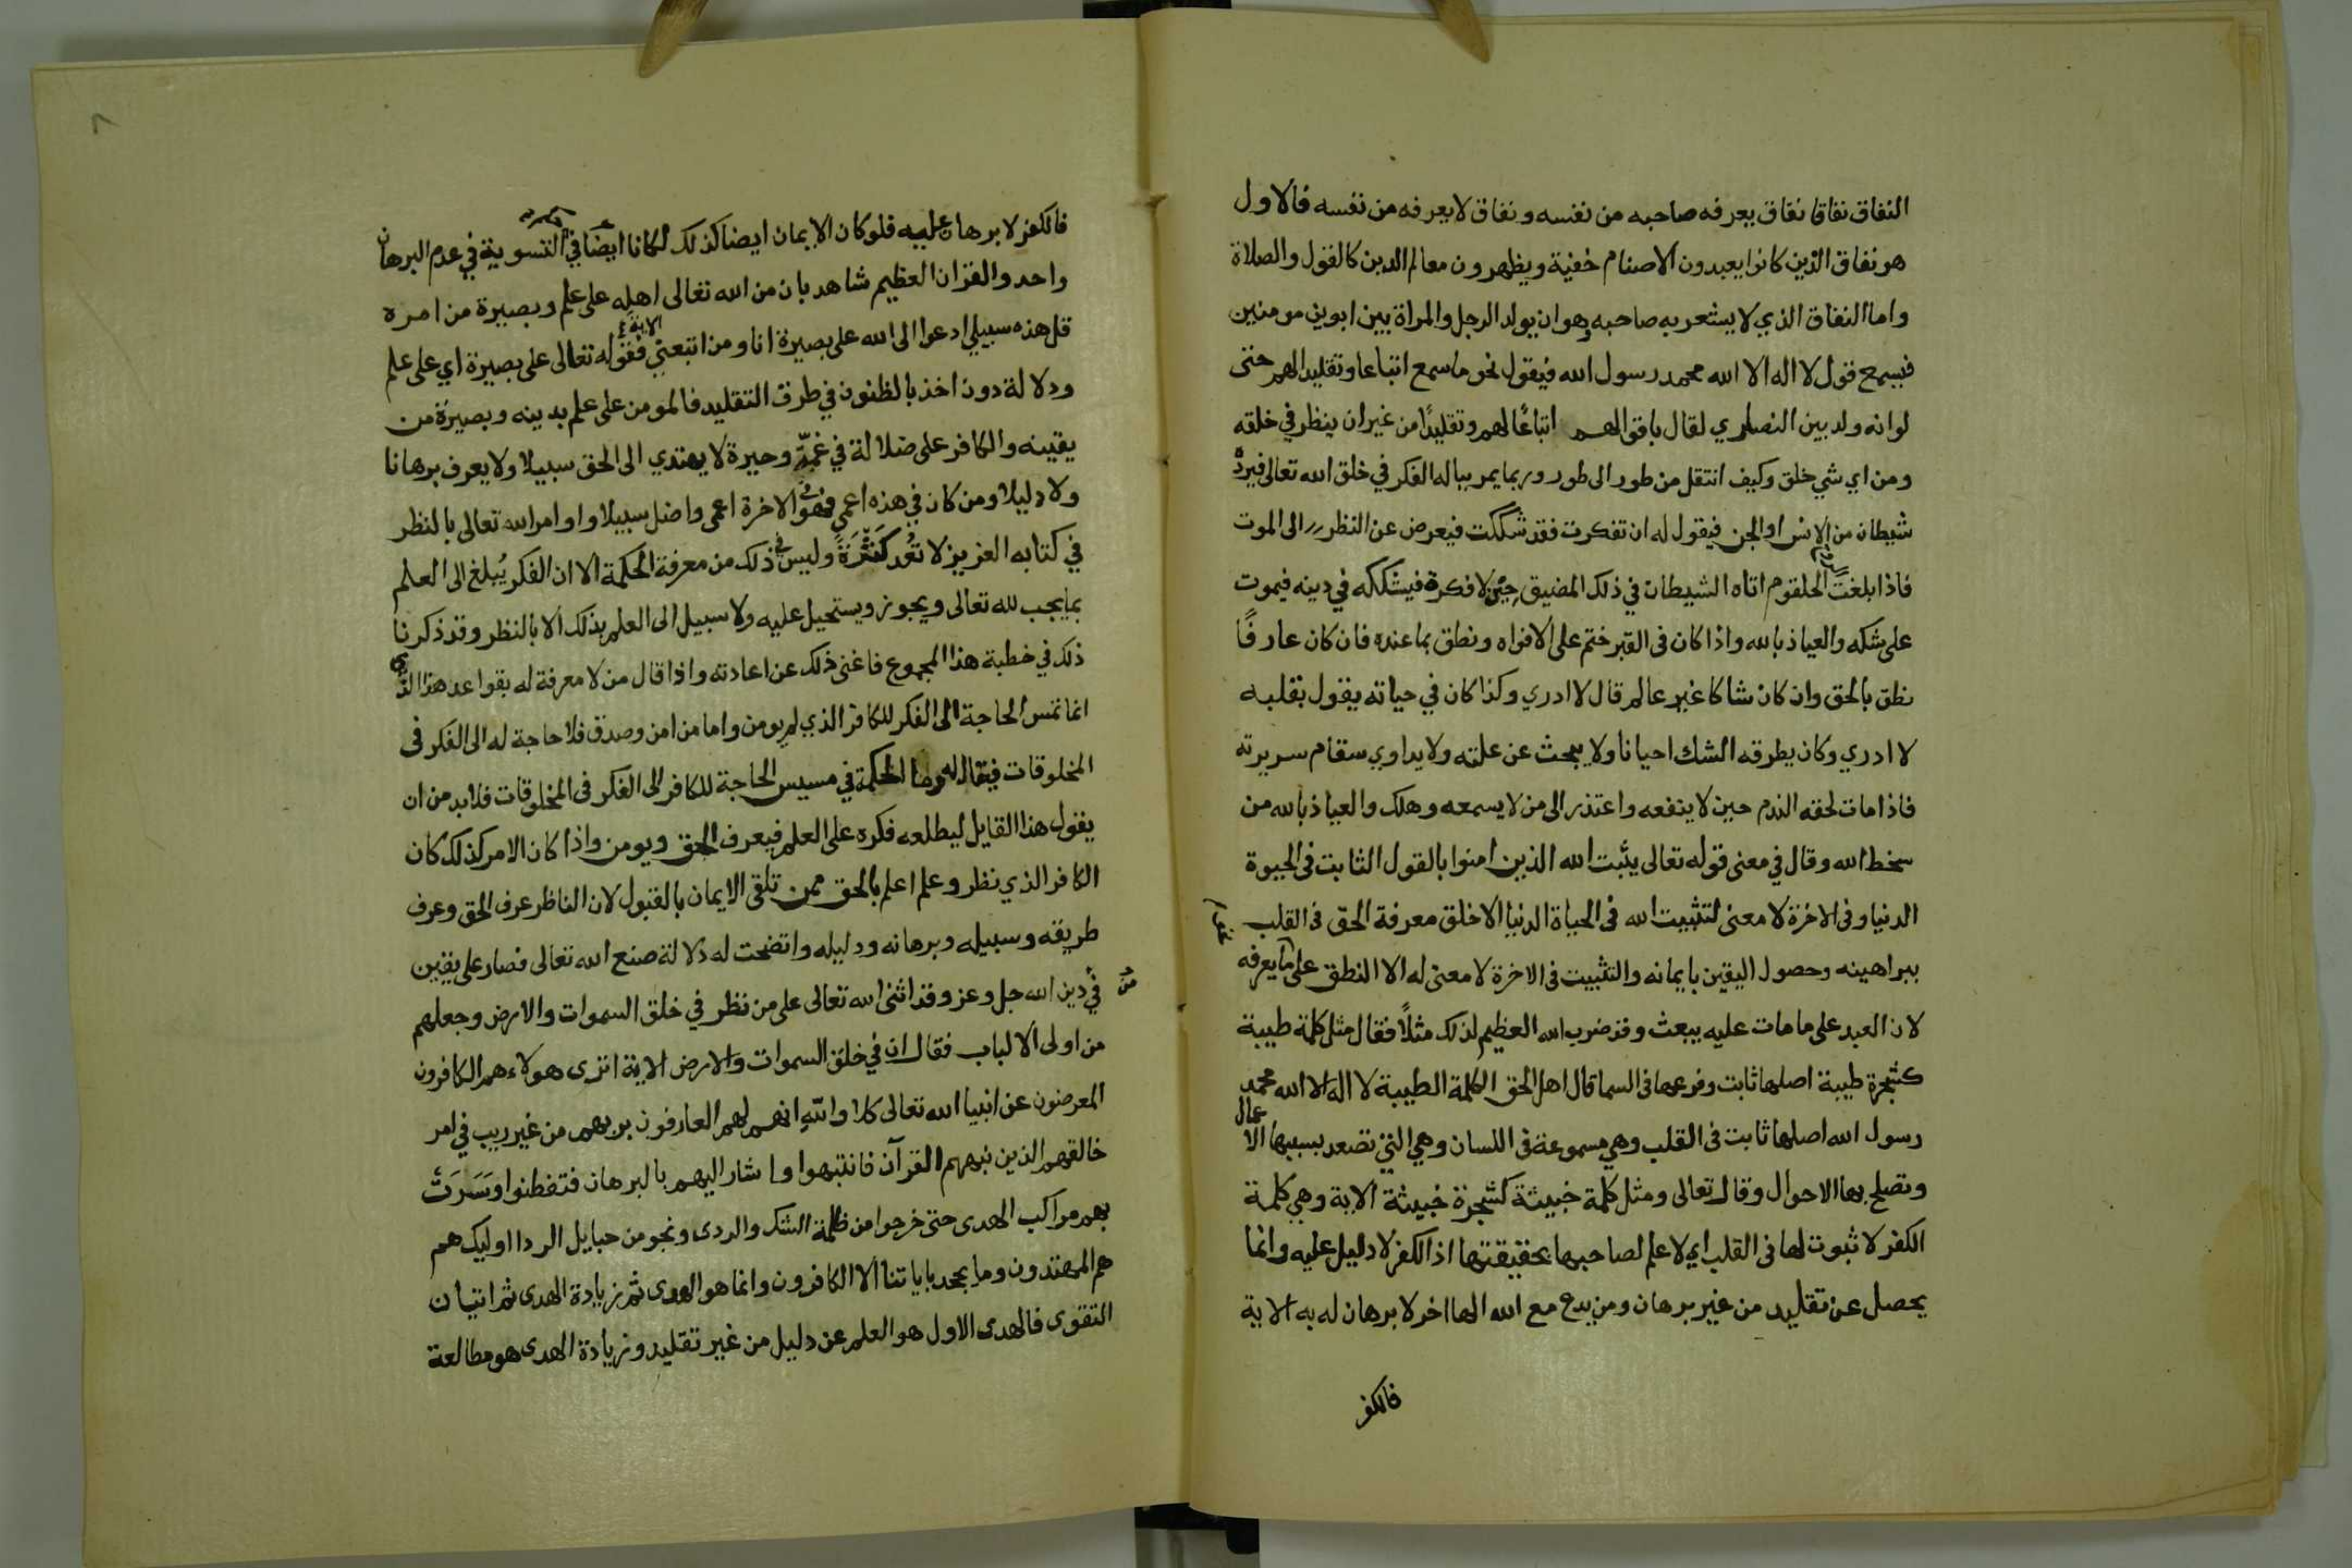 النفاق نفاقا نفاق يعرفه صاحبه من نفسه ونفاق لا يعرفه من نفسه فالاول
هو نفاق الذين كانوا يعبدون الاصنام خفية ويظهرون معالم الدين كالقول والصلاة
واما النفاق الذي لا يشعر به صاحبه وهو ان يولد الرجل والمراة بين ابوين مومنين
فيسمع قول لا اله الا الله محمد رسول الله فيقول نحو ما سمع اتباعا وتقليدا لهم حتى
لو انه ولد بين النصارى لقال باقوالهم اتباعًا لهم وتقليدًا من غير ان ينظر في خلقه
ومن اي شي خلق وكيف انتقل من طور الى طور وربما يمر بباله الفكر في خلق الله تعالى فيردّه
شيطان من الانس او الجن فيقول له ان تفكرت فقد شككت فيعرض عن النظر الى الموت
فاذا بلغت الحلقوم اتاه الشيطان في ذلك المضيق حين لا فكرة فيشككه في دينه فيموت
على شكه والعياذ بالله واذا كان فى القبر ختم على الافواه ونطق بما عنده فان كان عارفًا
نطق بالحق وان كان شاكا غير عالم قال لا ادري وكذا كان في حياته يقول بقلبه
لا ادري وكان يطرقه الشك احيانا ولا يبحث عن علته ولا يداوي سقام سريرته
فاذا مات لحقه الندم حين لا ينفعه واعتذر الى من لا يسمعه وهلك والعياذ بالله من
سخط الله وقال في معنى قوله تعالى يثبت الله الذين امنوا بالقول الثابت فى الحيوة
الدنيا وفى الاخرة لا معنى لتثبيت الله فى الحياة الدنيا الا خلق معرفة الحق فى القلب
ببراهينه وحصول اليقين بايمانه والتثبيت فى الاخرة لا معنى له الا النطق على ما يعرفه
لان العبد على ما مات عليه يبعث وقد ضرب الله العظيم لذلك مثلًا فقال مثل كلمة طيبة
كشجرة طيبة اصلها ثابت وفرعها فى السما قال اهل الحق الكلمة الطيبة لا اله الا الله محمد
رسول الله اصلها ثابت فى القلب وهي مسموعة فى اللسان وهي التي تصعد بسببها الاعمال
وتصلح بها الاحوال وقال تعالى ومثل كلمة خبيثة كشجرة خبيثة الاية وهي كلمة
الكفر لا ثبوت لها فى القلب اي لا علم لصاحبها بحقيقتها اذ الكفر لا دليل عليه وانما
يحصل عن تقليد من غير برهان ومن يدع مع الله الها اخر لا برهان له به الاية
فالكفر
فالكفر لا برهان عليه فلو كان الايمان ايضا كذلك لكانا ايضا في التسوية في عدم البرهان
واحد والقران العظيم شاهد بان من الله تعالى اهله على علم وبصيرة من امره
قل هذه سبيلي ادعوا الى الله على بصيرة انا ومن اتبعني الاية فقوله تعالى على بصيرة اي على علم
ودلالة دون اخذ بالظنون في طرق التقليد فالمومن على علم بدينه وبصيرة من
يقينه والكافر على ضلالة في غمّة وحيرة لا يهتدي الى الحق سبيلا ولا يعرف برهانا
ولا دليلا ومن كان في هذه اعمى فهو في الاخرة اعمى واضل سبيلا واوامر الله تعالى بالنظر
في كتابه العزيز لا تعد كثرة وليس في ذلك من معرفة الحكمة الا ان الفكر يُبلغ الى العلم
بما يجب لله تعالى ويجوز ويستحيل عليه ولا سبيل الى العلم بذلك الا بالنظر وقد ذكرنا
ذلك في خطبة هذا المجموع فاغنى ذلك عن اعادته واذا قال من لا معرفة له بقواعد هذا الذي
انما تمس الحاجة الى الفكر للكافر الذي لم يومن واما من امن وصدق فلا حاجة له الى الفكر فى
المخلوقات فيقال له وما الحكمة في مسيس الحاجة للكافر الى الفكر فى المخلوقات فلا بد من ان
يقول هذا القايل ليطلعه فكره على العلم فيعرف الحق ويومن واذا كان الامر كذلك كان
الكافر الذي نظر وعلم اعلم بالحق ممن تلقى الايمان بالقبول لان الناظر عرف الحق وعرف
طريقه وسبيله وبرهانه ودليله واتضحت له دلالة صنع الله تعالى فصار على يقين
في دين الله جل وعز وقد اثنى الله تعالى على من نظر في خلق السموات والارض وجعلهم
من اولى الالباب فقال ان في خلق السموات والارض الاية اترى هولاء هم الكافرون
المعرضون عن انبيا الله تعالى كلا والله انهم لهم العارفون بربهم من غير ريب في امر
خالقهم الذين نبههم القرآن فانتبهوا واشار اليهم بالبرهان فتفطنوا وسَرَت
بهم مراكب الهدى حتى خرجوا من ظلمة الشك والردى ونجو من حبايل الردا اوليك هم
هم المهتدون وما يجحد باياتنا الا الكافرون وانما هو الهدى ثم زيادة الهدى ثم اتيان
التقوى فالهدى الاول هو العلم عن دليل من غير تقليد وزيادة الهدى هو مطالعة